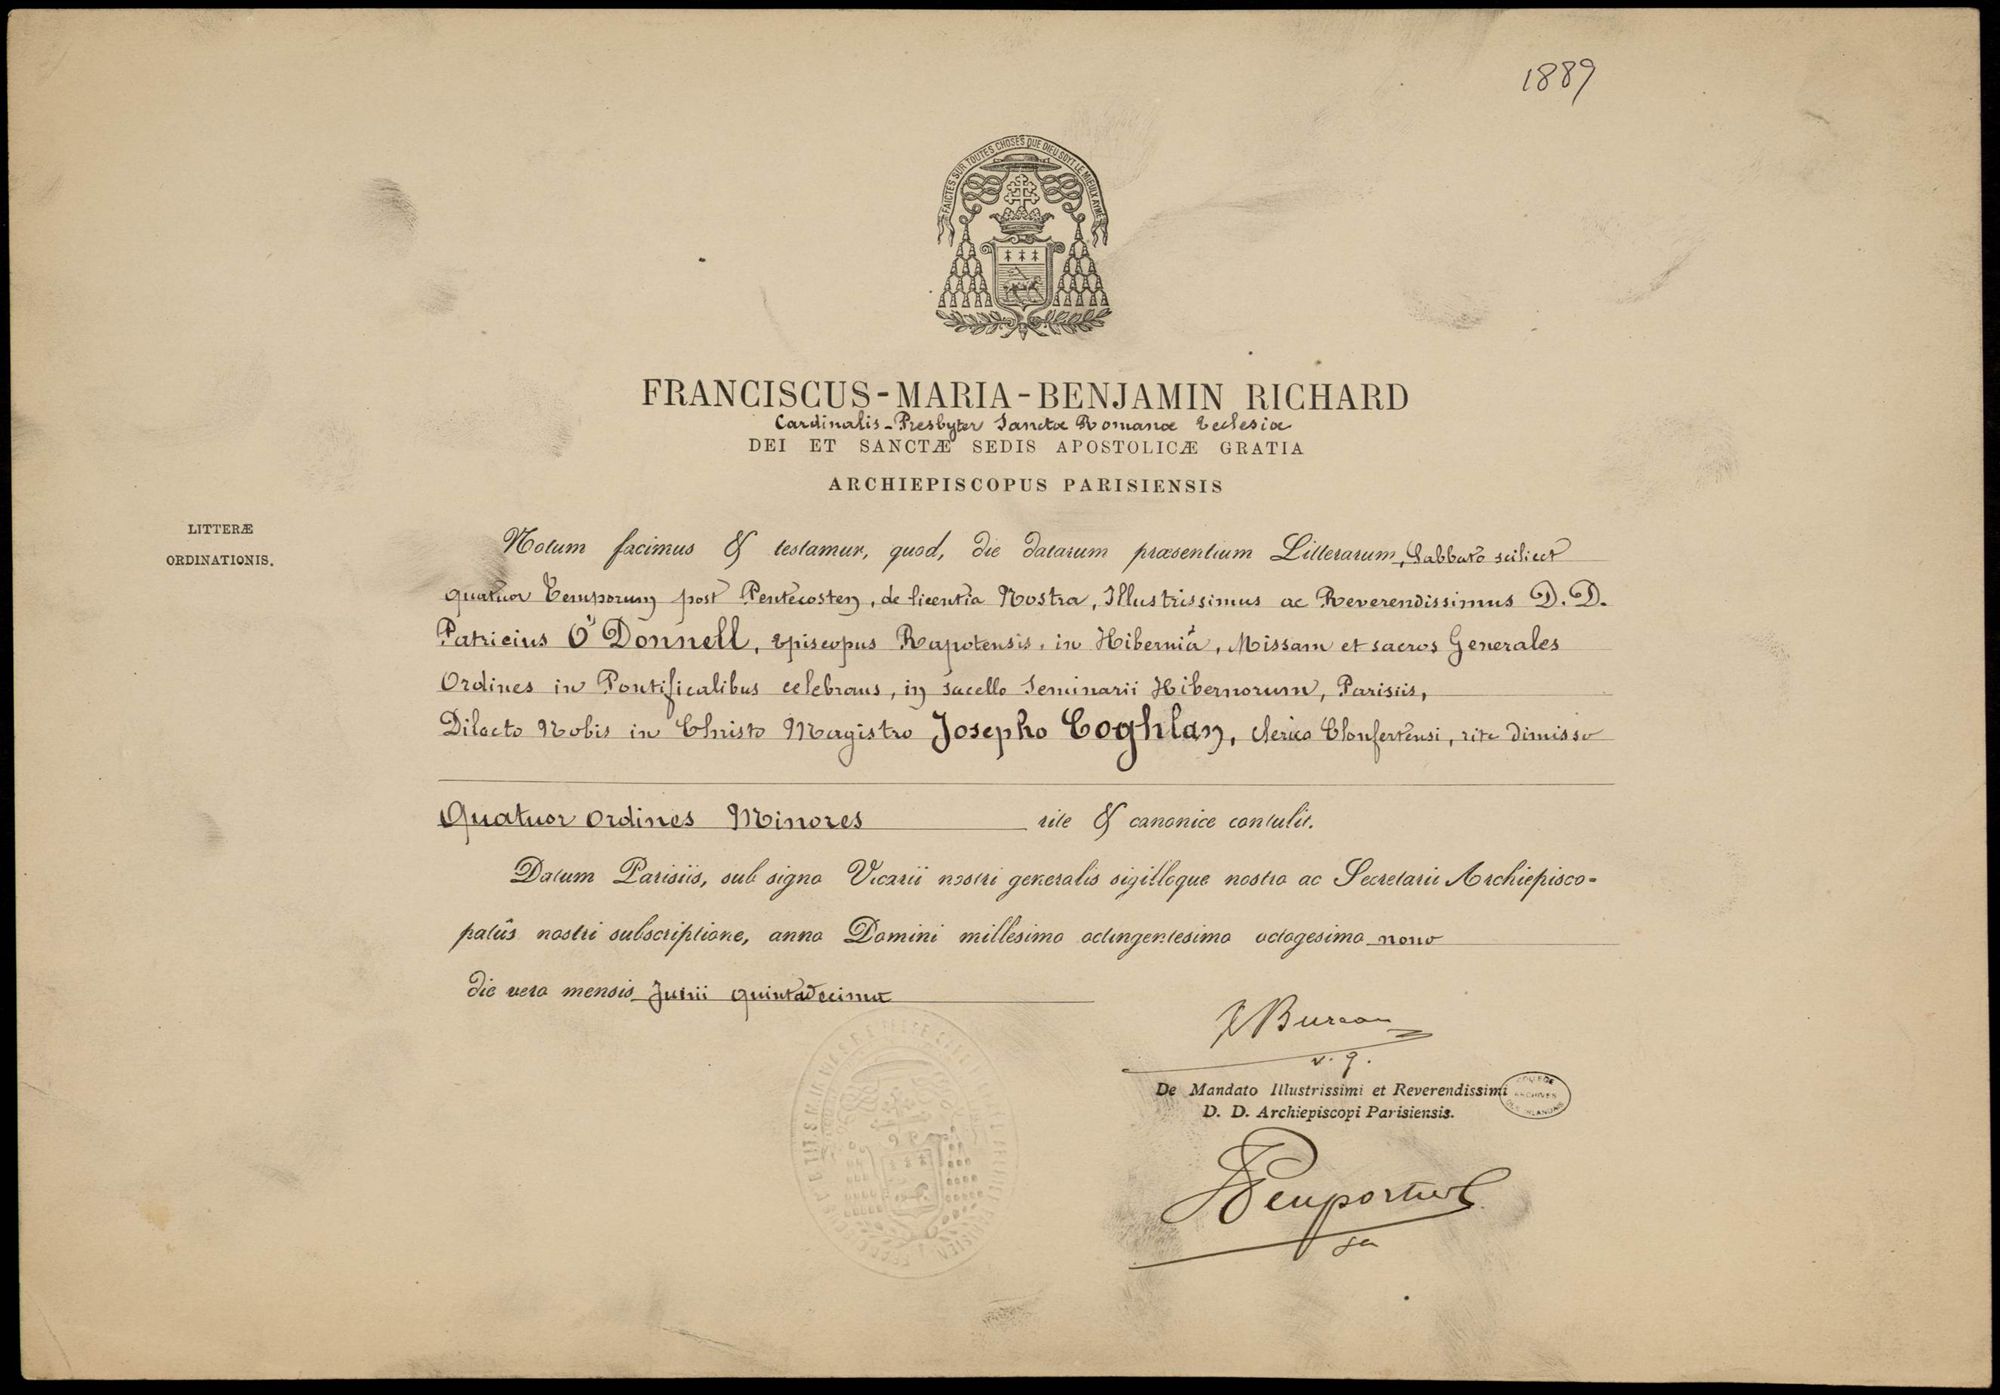 1889
FAICTES SUR TOUTES CHOSES QUE DIEU SOYT LE MIEULX AYMÉ
FRANCISCUS-MARIA-BENJAMIN RICHARD
Cardinalis-Presbyter Sanctæ Romanæ Ecclesiæ
DEI ET SANCTÆ SEDIS APOSTOLICÆ GRATIA
ARCHIEPISCOPUS PARISIENSIS
LITTERÆ
ORDINATIONIS.
Notum facimus & testamur, quod, die datarum præsentium Litterarum, Sabbato scilicet
quatuor Temporum post Pentecosten, de licentia Nostra, Illustrissimus ac Reverendissimus D. D.
Patricius O'Donnell, Episcopus Rapotensis, in Hiberniâ, Missam et sacros Generales
Ordines in Pontificalibus celebrans, in sacello Seminarii Hibernorum, Parisiis,
Dilecto Nobis in Christo Magistro Josepho Coghlan, clerico Clonfertensi, rite dimisso
Quatuor Ordines Minores rite & canonice contulit.
Datum Parisiis, sub signo Vicarii nostri generalis sigilloque nostro ac Secretarii Archiepisco=
patûs nostri subscriptione, anno Domini millesimo octingentesimo octogesimo nono
die vero mensis Junii quintadecima
Bureau
v. g.
De Mandato Illustrissimi et Reverendissimi
D. D. Archiepiscopi Parisiensis.
COLLEGE
ARCHIVES
DES IRLANDAIS